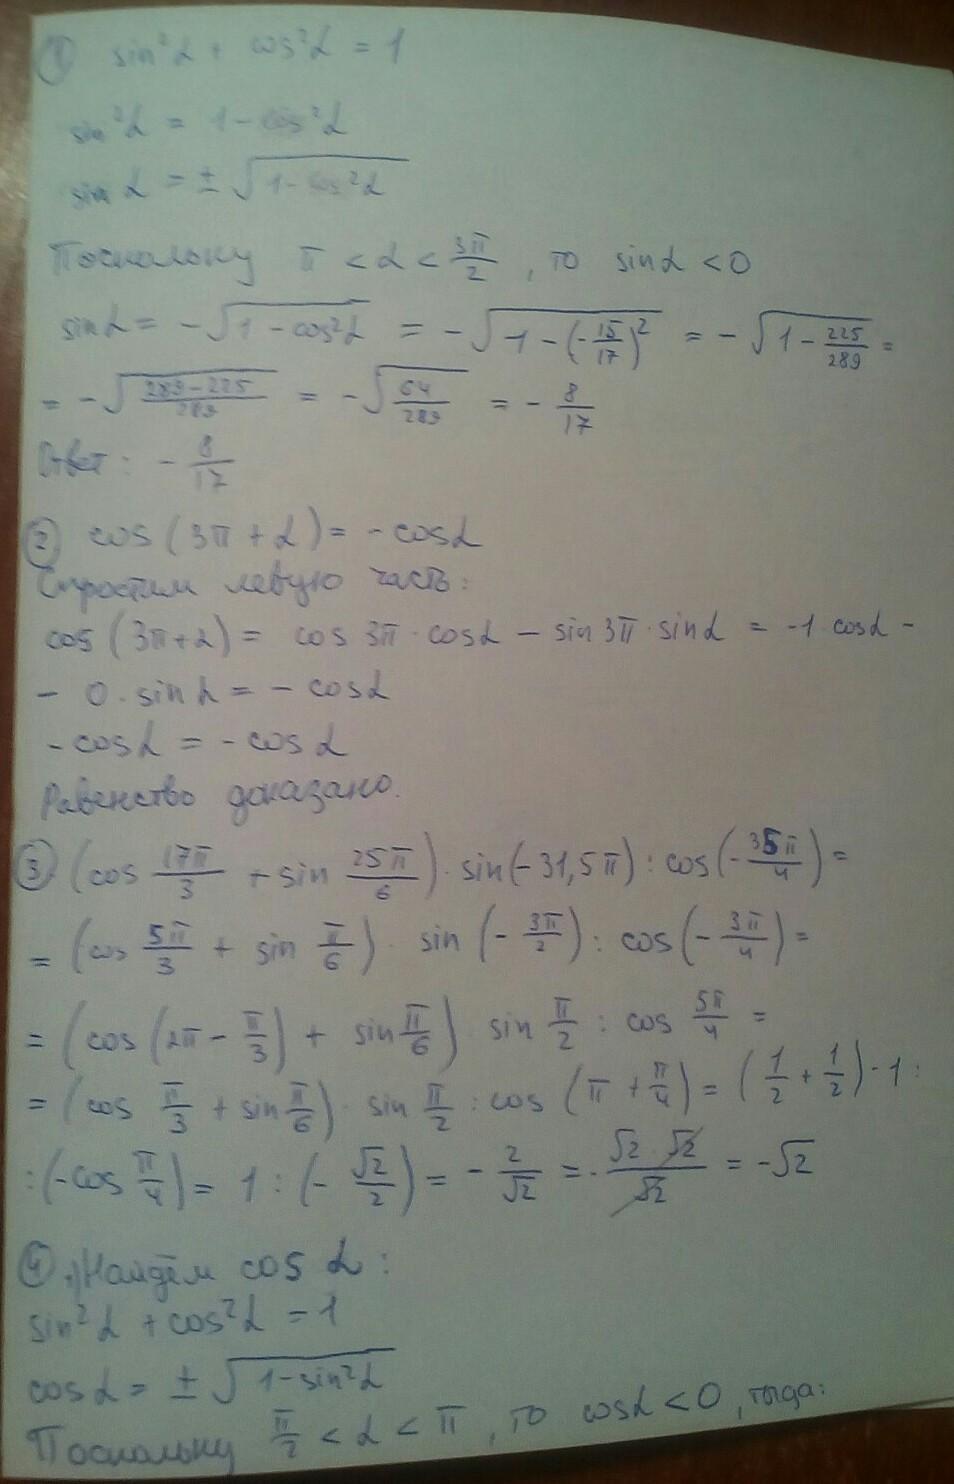 ① sin²α + cos²α = 1
sin²α = 1 - cos²α
sin α = ± √(1 - cos²α)
Поскольку π < α < 3π/2, то sinα < 0
sinα = - √(1 - cos²α) = - √(1 - (-15/17)²) = - √(1 - 225/289) =
= - √((289 - 225)/289) = - √(64/289) = - 8/17
Ответ: - 8/17
② cos(3π + α) = - cosα
Спростим левую часть:
cos(3π + α) = cos 3π · cosα - sin 3π · sinα = -1 · cosα -
- 0 · sin α = - cosα
- cosα = - cos α
Равенство доказано.
③ (cos 17π/3 + sin 25π/6) · sin(-31,5π) : cos(-35π/4) =
= (cos 5π/3 + sin π/6) · sin(-3π/2) : cos(-3π/4) =
= (cos(2π - π/3) + sin π/6) · sin π/2 : cos 5π/4 =
= (cos π/3 + sin π/6) · sin π/2 : cos(π + π/4) = (1/2 + 1/2) · 1 :
: (-cos π/4) = 1 : (- √2/2) = - 2/√2 = - (√2 · √2)/√2 = - √2
④ 1) Найдём cos α:
sin²α + cos²α = 1
cosα = ± √(1 - sin²α)
Поскольку π/2 < α < π, то cosα < 0, тогда: